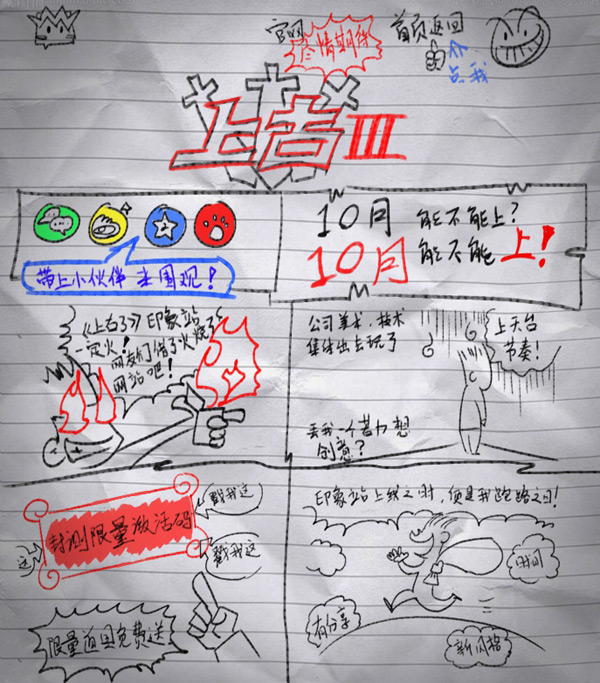 官网
尽情期待
首页返回
点我
上古III
10月 能不能上?
10月 能不能 上!
带上小伙伴 来围观!
《上古3》印象站
一定火!
网友们借了火烧了
网站吧!
公司美术,技术
集体出去玩了
上天台
节奏!
丢我一个苦力想
创意?
封测限量激活码
戳我这
戳我这
这
限量道具免费送
印象站上线之时,便是我跑路之日!
时间
有分享
新风格